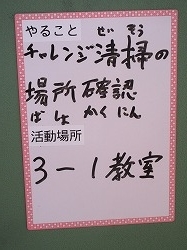 やること
せいそう
チャレンジ清掃の
場所確認
ばしょかくにん
活動場所
3-1教室